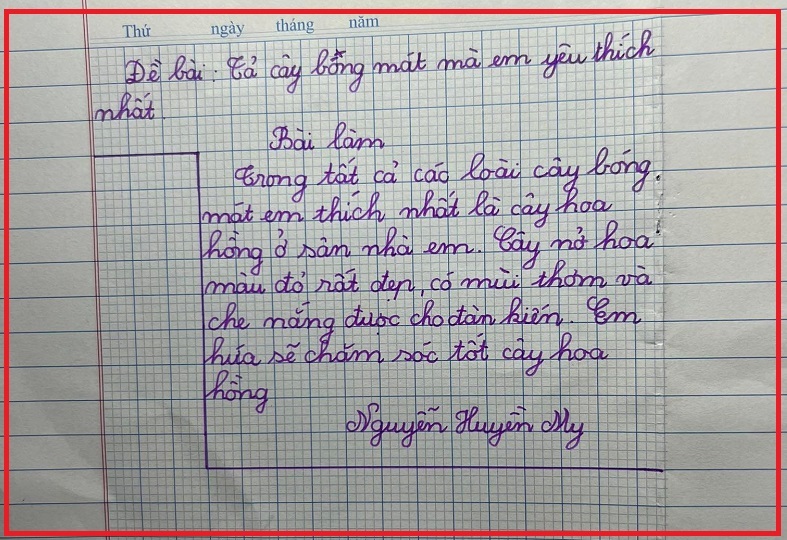 Thứ ngày tháng năm
Đề bài: Tả cây bống mát mà em yêu thích
nhất.
Bài làm
Trong tất cả các loài cây bóng.
mát em thích nhất là cây hoa
hồng ở sân nhà em. Cây nở hoa
màu đỏ rất đẹp, có mùi thơm và
che nắng được cho đàn kiến. Em
hứa sẽ chăm sóc tốt cây hoa
hồng
Nguyễn Huyền My